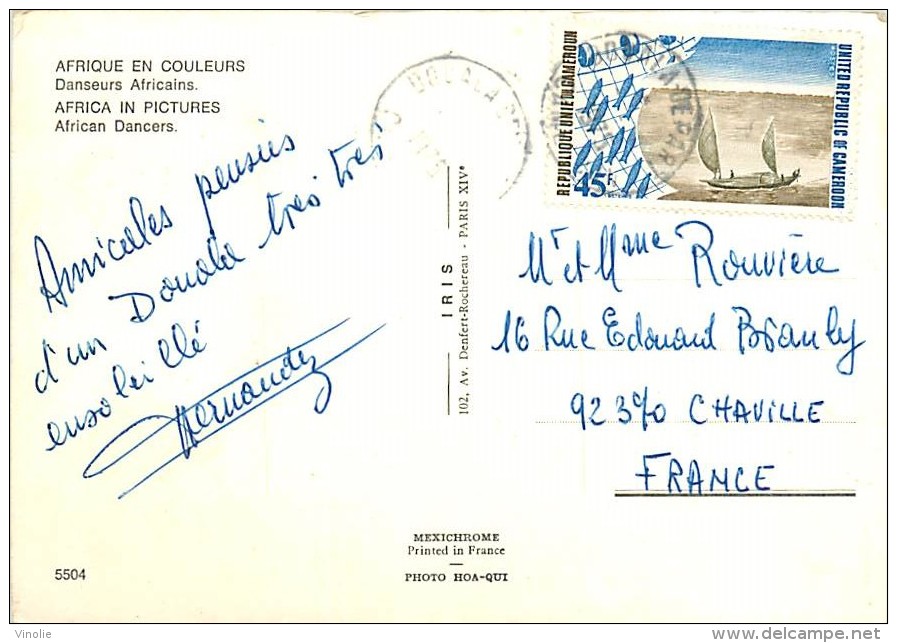 AFRIQUE EN COULEURS
Danseurs Africains.
AFRICA IN PICTURES
African Dancers.
Amicales pensées
d'un Douala très très
ensoleillé
Hernandez
IRIS
102, Av. Denfert-Rochereau - PARIS XIVe
DOUALA
REPUBLIQUE UNIE DU CAMEROUN
UNITED REPUBLIC OF CAMEROON
45F
Mr et Mme Rouvière
16 Rue Edouard Branly
92370 CHAVILLE
FRANCE
MEXICHROME
Printed in France
PHOTO HOA-QUI
5504
Vinolie
delcampe.net